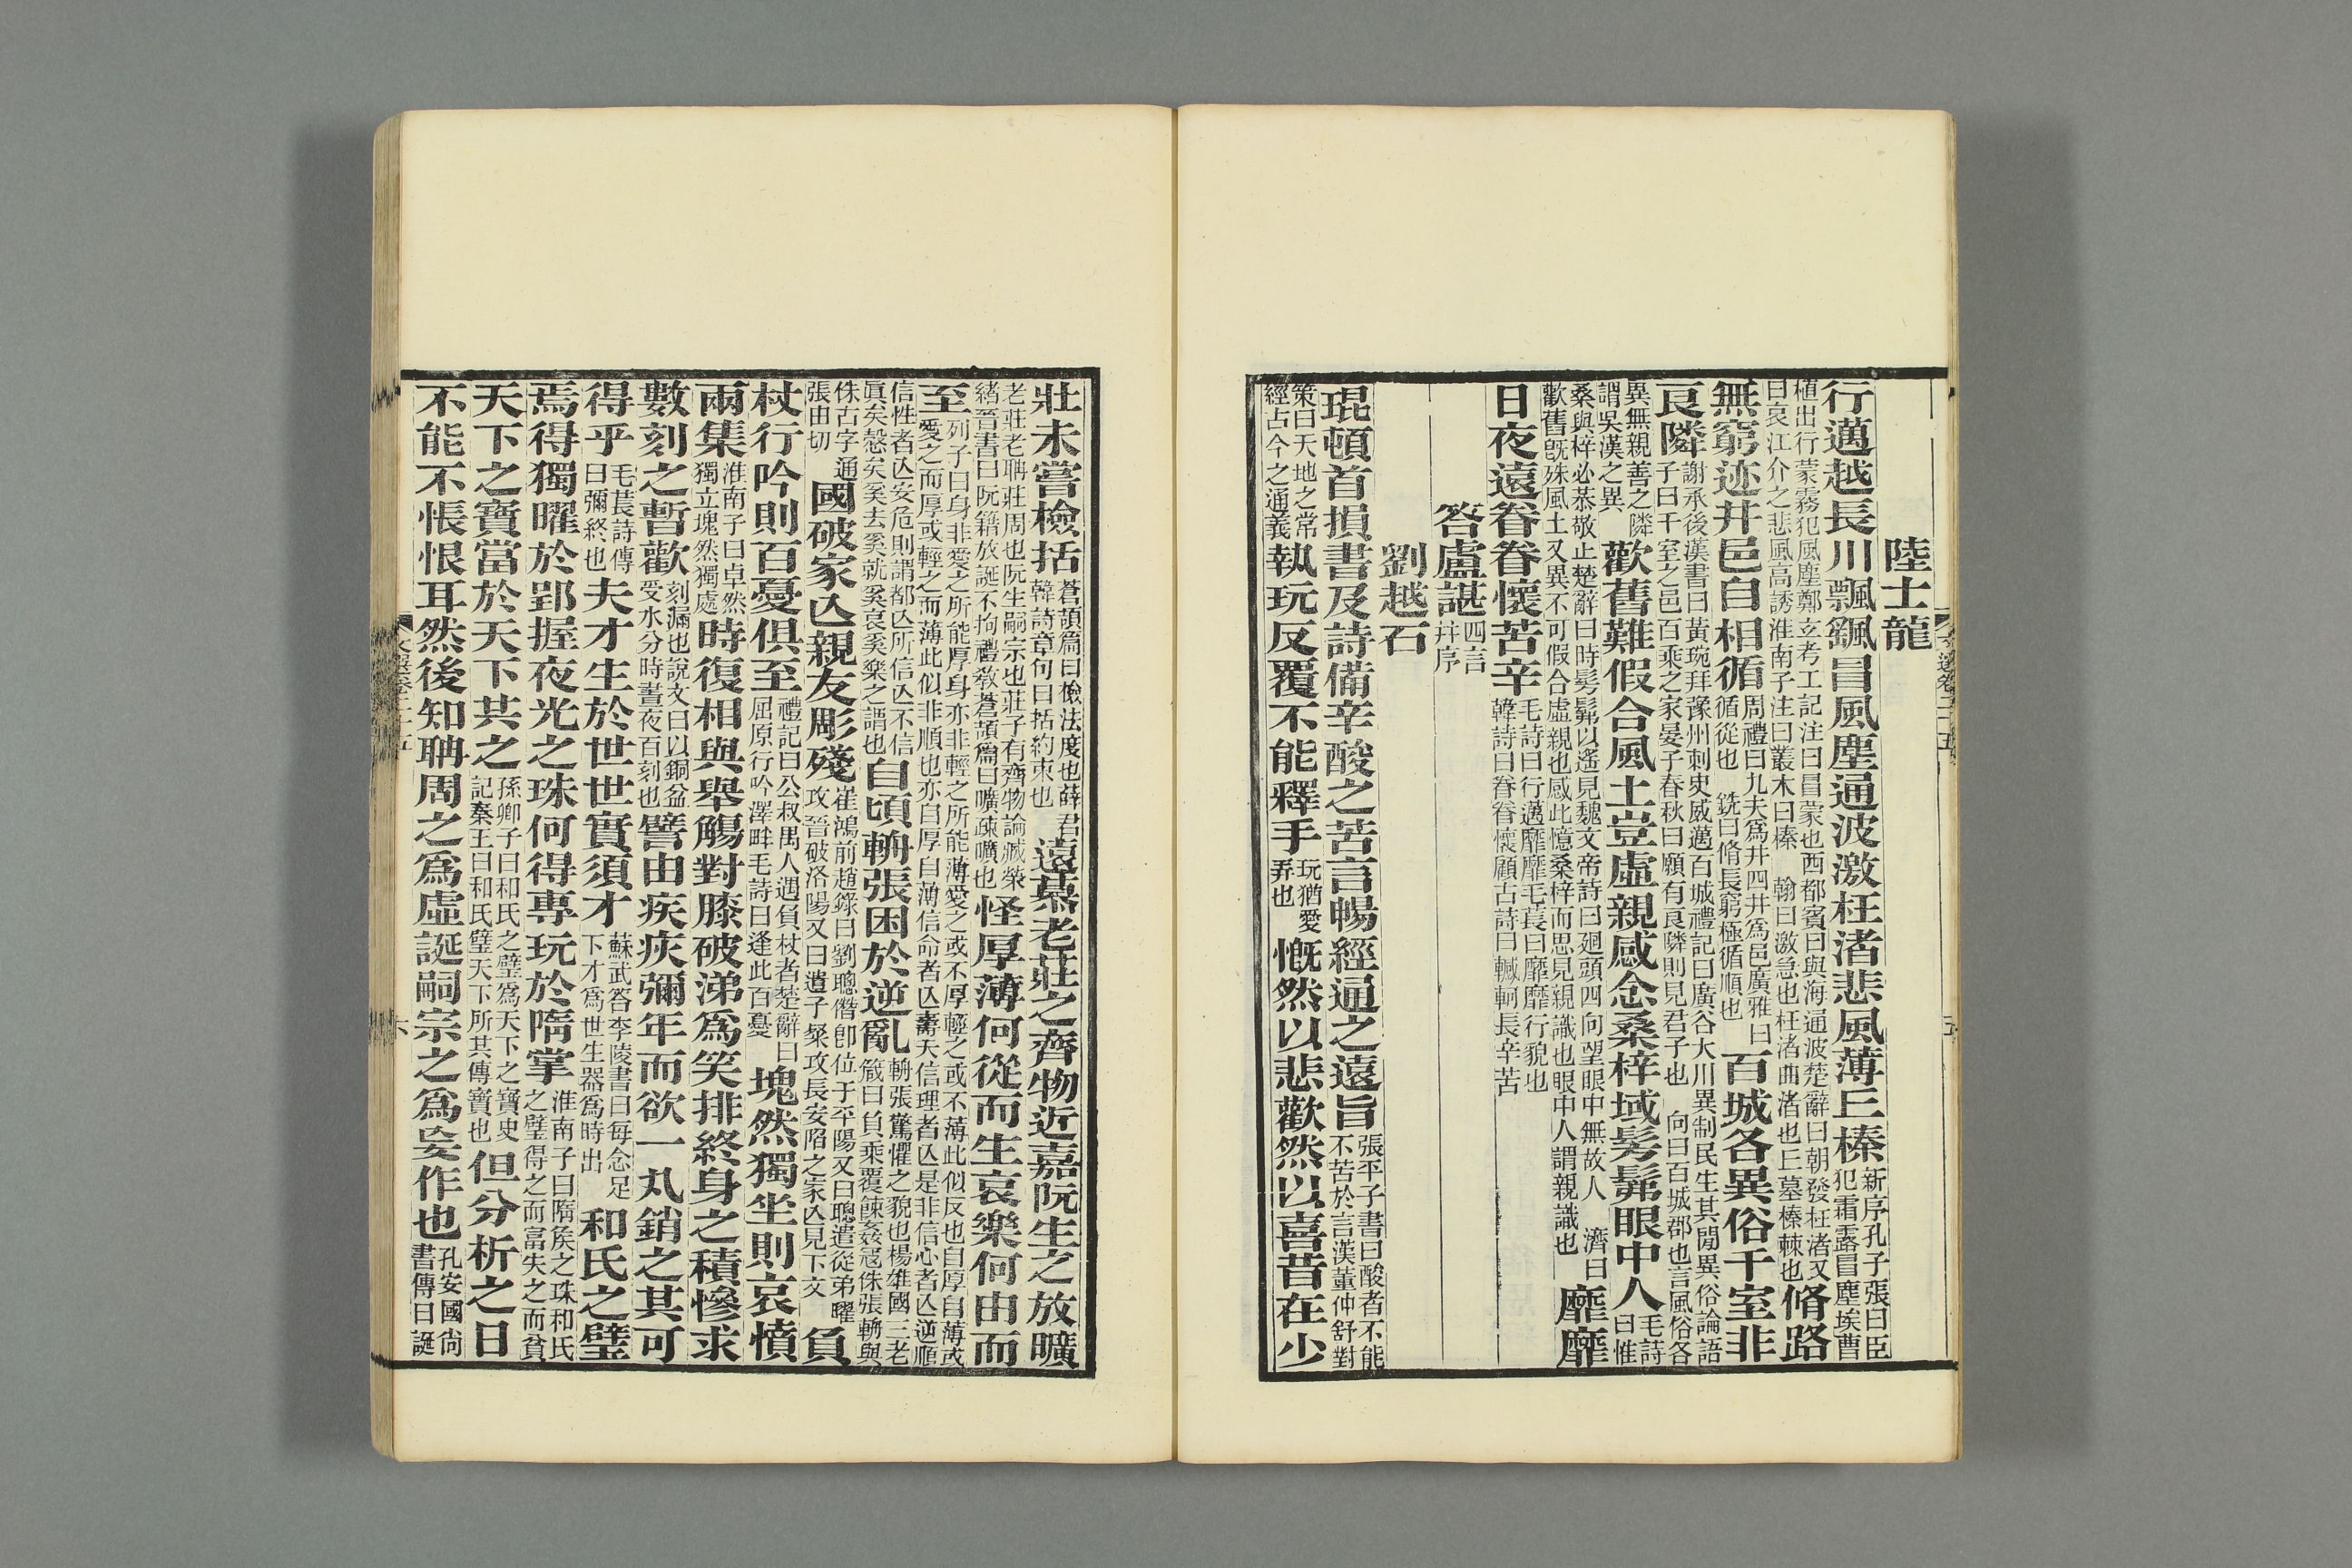 陸士龍
行邁越長川飄颻冒風塵通波激枉渚悲風薄丘榛新序孔子張曰臣犯霜露冒塵埃曹
植出行蒙霧犯風塵鄭玄考工記注曰冒蒙也西都賓曰與海通波楚辭曰朝發枉渚又曰哀江介之悲風高誘淮南子注曰叢木曰榛 翰曰激急也枉渚曲渚也丘墓榛棘也脩路
無窮迹井邑自相循周禮曰九夫爲井四井爲邑廣雅曰循從也 銑曰脩長窮極循順也百城各異俗千室非
良隣謝承後漢書曰黃琬拜豫州刺史威邁百城禮記曰廣谷大川異制民生其閒異俗論語子曰千室之邑百乘之家晏子春秋曰願有良隣則見君子也 向曰百城郡也言風俗各
異無親善之隣謂吳漢之異歡舊難假合風土豈虛親感念桑梓域髣髴眼中人毛詩曰惟
桑與梓必恭敬止楚辭曰時髣髴以遙見魏文帝詩曰廻頭四向望眼中無故人 濟曰歡舊旣殊風土又異不可假合虛親也感此憶桑梓而思見親識也眼中人謂親識也靡靡
日夜遠眷眷懷苦辛毛詩曰行邁靡靡毛萇曰靡靡行貌也韓詩曰眷眷懷顧古詩曰轗軻長辛苦
答盧諶四言幷序
劉越石
琨頓首損書及詩備辛酸之苦言暢經通之遠旨張平子書曰酸者不能不苦於言漢董仲舒對
策曰天地之常經占今之通義執玩反覆不能釋手玩猶愛弄也慨然以悲歡然以喜昔在少
壯未嘗檢括蒼頡篇曰檢法度也薛君韓詩章句曰括約束也遠慕老莊之齊物近嘉阮生之放曠
老莊老聃莊周也阮生嗣宗也莊子有齊物論臧榮緒晉書曰阮籍放誕不拘禮敎蒼頡篇曰曠疎曠也怪厚薄何從而生哀樂何由而
至列子曰身非愛之所能厚身亦非輕之所能薄愛之或不厚輕之或不薄此似反也自厚自薄或愛之而厚或輕之而薄此似非順也亦自厚自薄信命者亾壽夭信理者亾是非信心者亾逆順
信性者亾安危則謂都亾所信亾不信眞矣慤矣奚去奚就奚哀奚樂之謂也自頃輈張困於逆亂輈張驚懼之貌也楊雄國三老箴曰負乘覆餗姦寇侏張輈與
侏古字通張由切國破家亾親友彫殘崔鴻前趙錄曰劉聰僭卽位于平陽又曰聰遣從弟曜攻晉破洛陽又曰遣子粲攻長安陷之家亾見下文負
杖行吟則百憂俱至禮記曰公叔禺人遇負杖者楚辭曰屈原行吟澤畔毛詩曰逢此百憂塊然獨坐則哀憤
兩集淮南子曰卓然獨立塊然獨處時復相與舉觴對膝破涕爲笑排終身之積慘求
數刻之暫歡刻漏也說文曰以銅盆受水分時晝夜百刻也譬由疾疢彌年而欲一丸銷之其可
得乎毛萇詩傳曰彌終也夫才生於世世實須才蘇武答李陵書曰每念足下才爲世生器爲時出和氏之璧
焉得獨曜於郢握夜光之珠何得專玩於隋掌淮南子曰隋侯之珠和氏之璧得之而富失之而貧
天下之寶當於天下共之孫卿子曰和氏之璧爲天下之寶史記秦王曰和氏璧天下所共傳寶也但分析之日
不能不悵恨耳然後知聃周之爲虛誕嗣宗之爲妄作也孔安國尙書傳曰誕